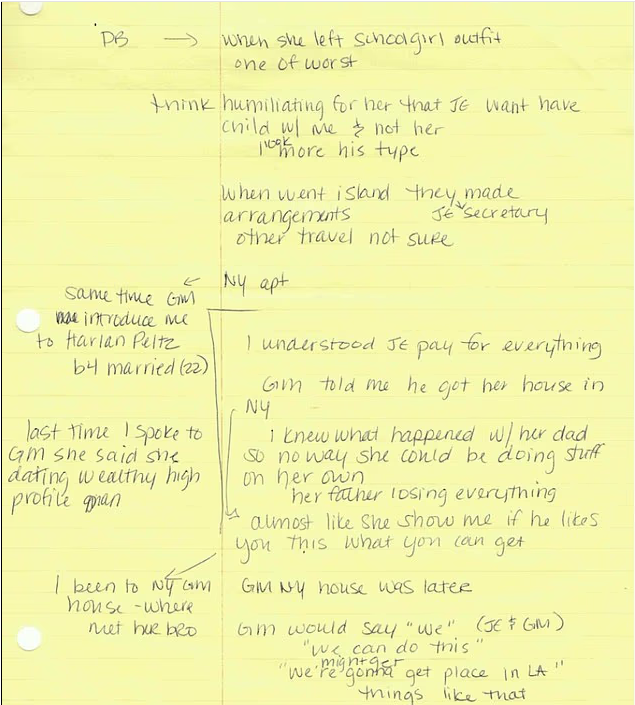 DB → when she left schoolgirl outfit
one of worst
think humiliating for her that JE want have
child w/ me & not her
look
more his type
when went island they made
arrangements JE secretary
other travel not sure
NY apt
same time GM
introduce me
to Harlan Peltz
b4 married (22)
I understood JE pay for everything
GM told me he got her house in
NY
I knew what happened w/ her dad
so no way she could be doing stuff
on her own
her father losing everything
last time I spoke to
GM she said she
dating wealthy high
profile man
almost like she show me if he likes
you this what you can get
I been to NY GM
house - where
met her bro
GM NY house was later
GM would say "we" (JE & GM)
"we can do this"
might get
"we're gonna get place in LA"
things like that